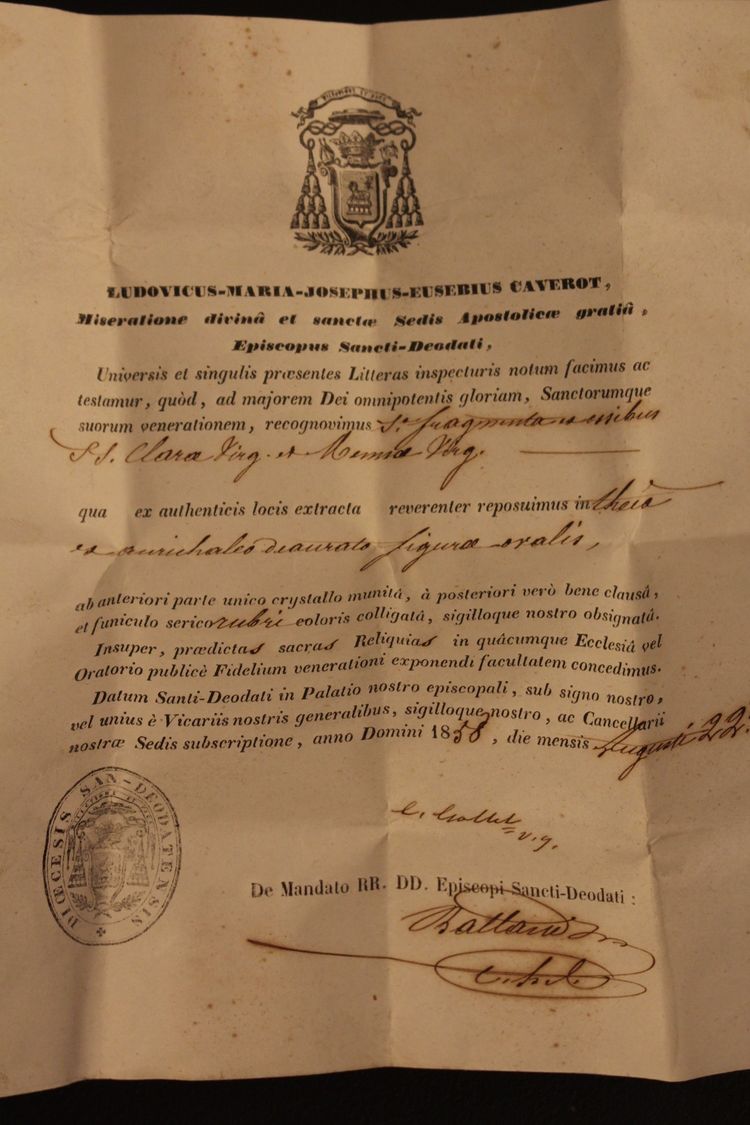 LUDOVICUS-MARIA-JOSEPHUS-EUSEBIUS CAVEROT,
Miseratione divinâ et sanctæ Sedis Apostolicæ gratiâ,
Episcopus Sancti-Deodati,
Universis et singulis præsentes Litteras inspecturis notum facimus ac
testamur, quòd, ad majorem Dei omnipotentis gloriam, Sanctorumque
suorum venerationem, recognovimus S. fragmenta ex ossibus
SS. Claræ Virg. et Memmiæ Virg.
qua ex authenticis locis extracta reverenter reposuimus in thecâ
ex aurichalco deaurato figuræ ovalis,
ab anteriori parte unico crystallo munitâ, à posteriori verò bene clausâ,
et funiculo serico rubri coloris colligatâ, sigilloque nostro obsignatâ.
Insuper, prædictas sacras Reliquias in quâcumque Ecclesiâ vel
Oratorio publicè Fidelium venerationi exponendi facultatem concedimus.
Datum Santi-Deodati in Palatio nostro episcopali, sub signo nostro,
vel unius è Vicariis nostris generalibus, sigilloque nostro, ac Cancellarii
nostræ Sedis subscriptione, anno Domini 1858, die mensis Augusti 22.
DIŒCESIS SAN-DEODATENSIS
v. g.
De Mandato RR. DD. Episcopi Sancti-Deodati :